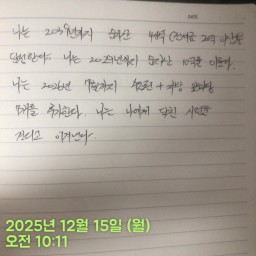 나는 2039년까지 순자산 44억 (전세금 20억 자산을
달성한다. 나는 2029년까지 순자산 10억을 이룬다.
나는 2026년 7월까지
5개를 추가한다. 나는 나에게 닥친 시련을
견디고 이겨낸다
2025년 12월 15일 (월)
오전 10:11